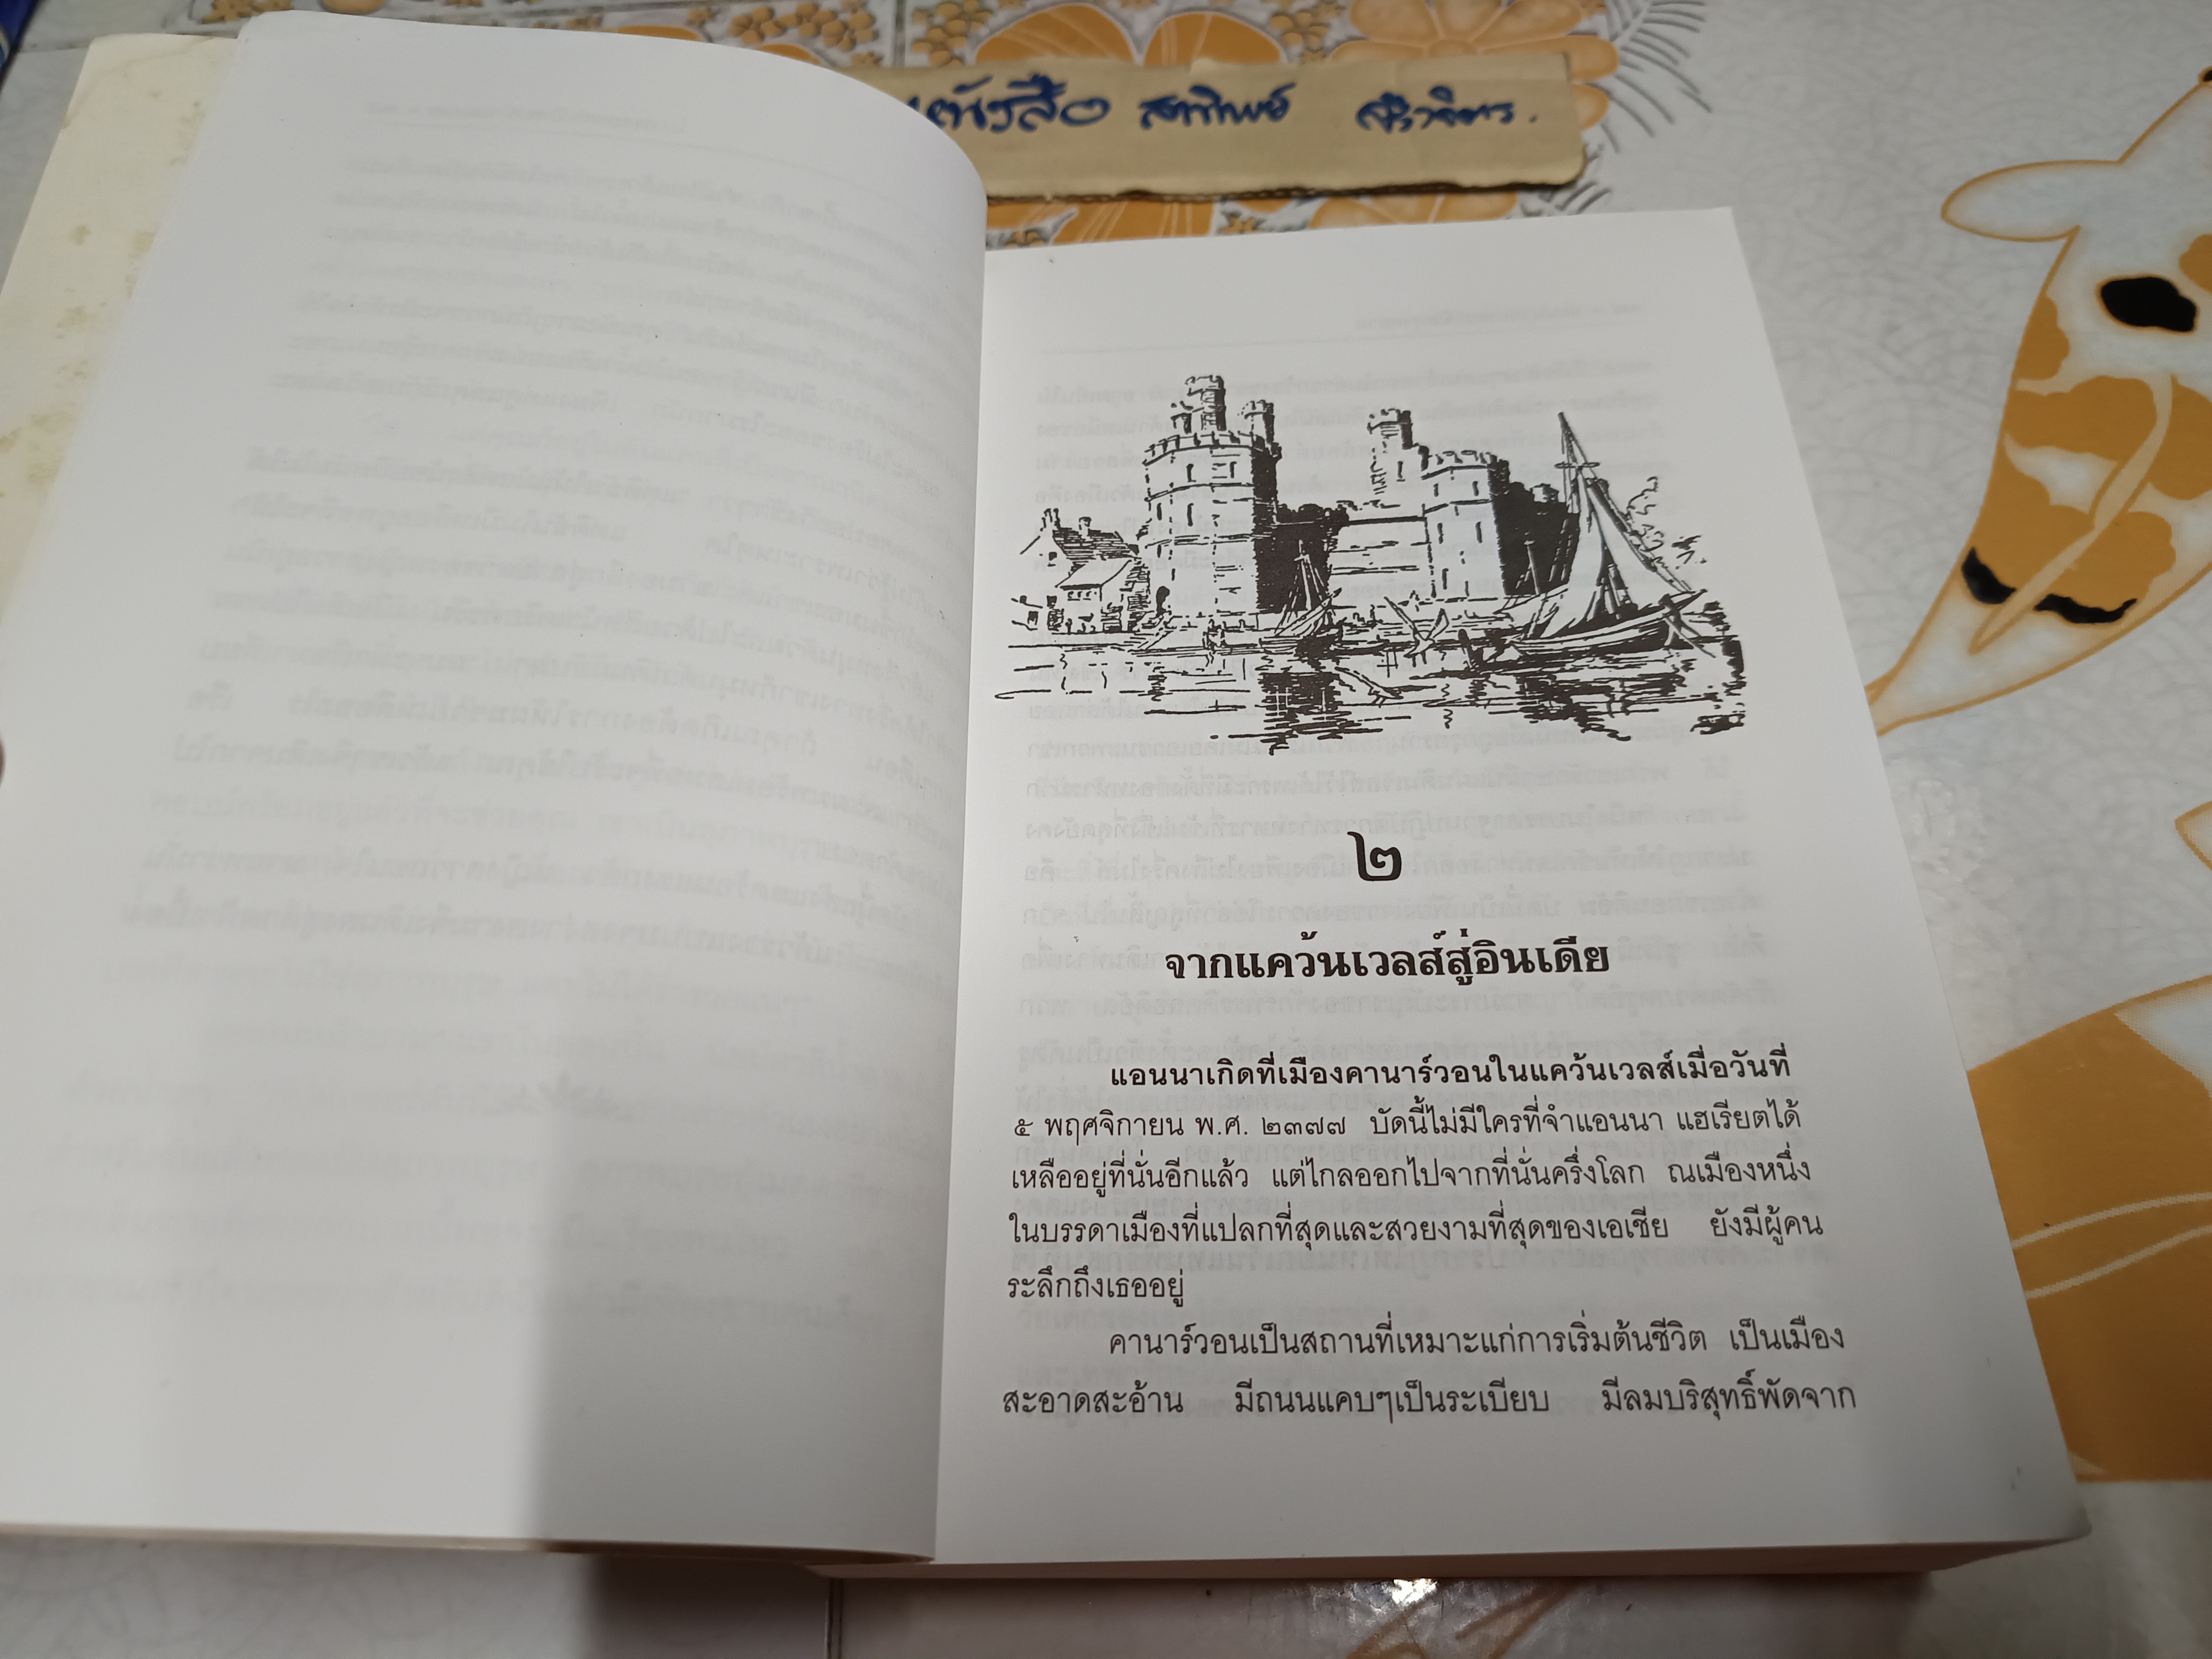 หนังสือ
๒
จากแคว้นเวลส์สู่อินเดีย
แอนนาเกิดที่เมืองคานาร์วอนในแคว้นเวลส์เมื่อวันที่
๕ พฤศจิกายน พ.ศ. ๒๓๗๗ บัดนี้ไม่มีใครที่จำแอนนา แฮเรียตได้
เหลืออยู่ที่นั่นอีกแล้ว แต่ไกลออกไปจากที่นั่นครึ่งโลก ณเมืองหนึ่ง
ในบรรดาเมืองที่แปลกที่สุดและสวยงามที่สุดของเอเชีย ยังมีผู้คน
ระลึกถึงเธออยู่
คานาร์วอนเป็นสถานที่เหมาะแก่การเริ่มต้นชีวิต เป็นเมือง
สะอาดสะอ้าน มีถนนแคบๆเป็นระเบียบ มีลมบริสุทธิ์พัดจาก